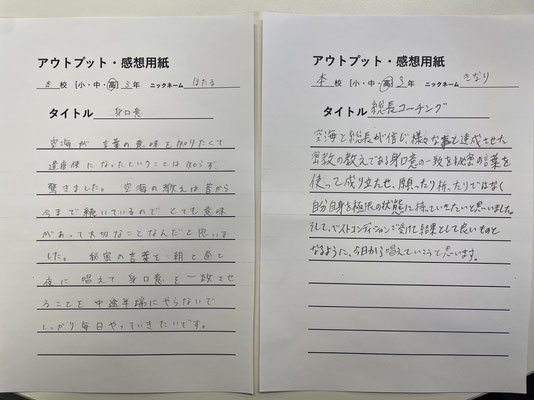 アウトプット・感想用紙
本 校 [小・中・高] 3 年 ニックネーム ほたる
タイトル 身口意
空海が 言葉の意味を知りたくて
遣唐使になったということは知らず、
驚きました。 空海の教えは昔から
今まで続いているので とても意味
があって大切なことなんだと思いま
した。 秘密の言葉を 朝と昼と
夜に 唱えて 身口意を一致させ
ることを 中途半端にやらないで
しっかり毎日やっていきたいです。
アウトプット・感想用紙
本 校 [小・中・高] 3 年 ニックネーム きなり
タイトル 総長コーチング
空海と総長が信じ、様々な事を達成させた
密教の教えである身口意の一致を秘密の言葉を
使って成り立たせ、願ったり祈ったりではなく
自分自身を極限の状態に持っていきたいと思いました。
そして、ベストコンディションで受けて結果として良いものと
なるように、今日から唱えていこうと思います。